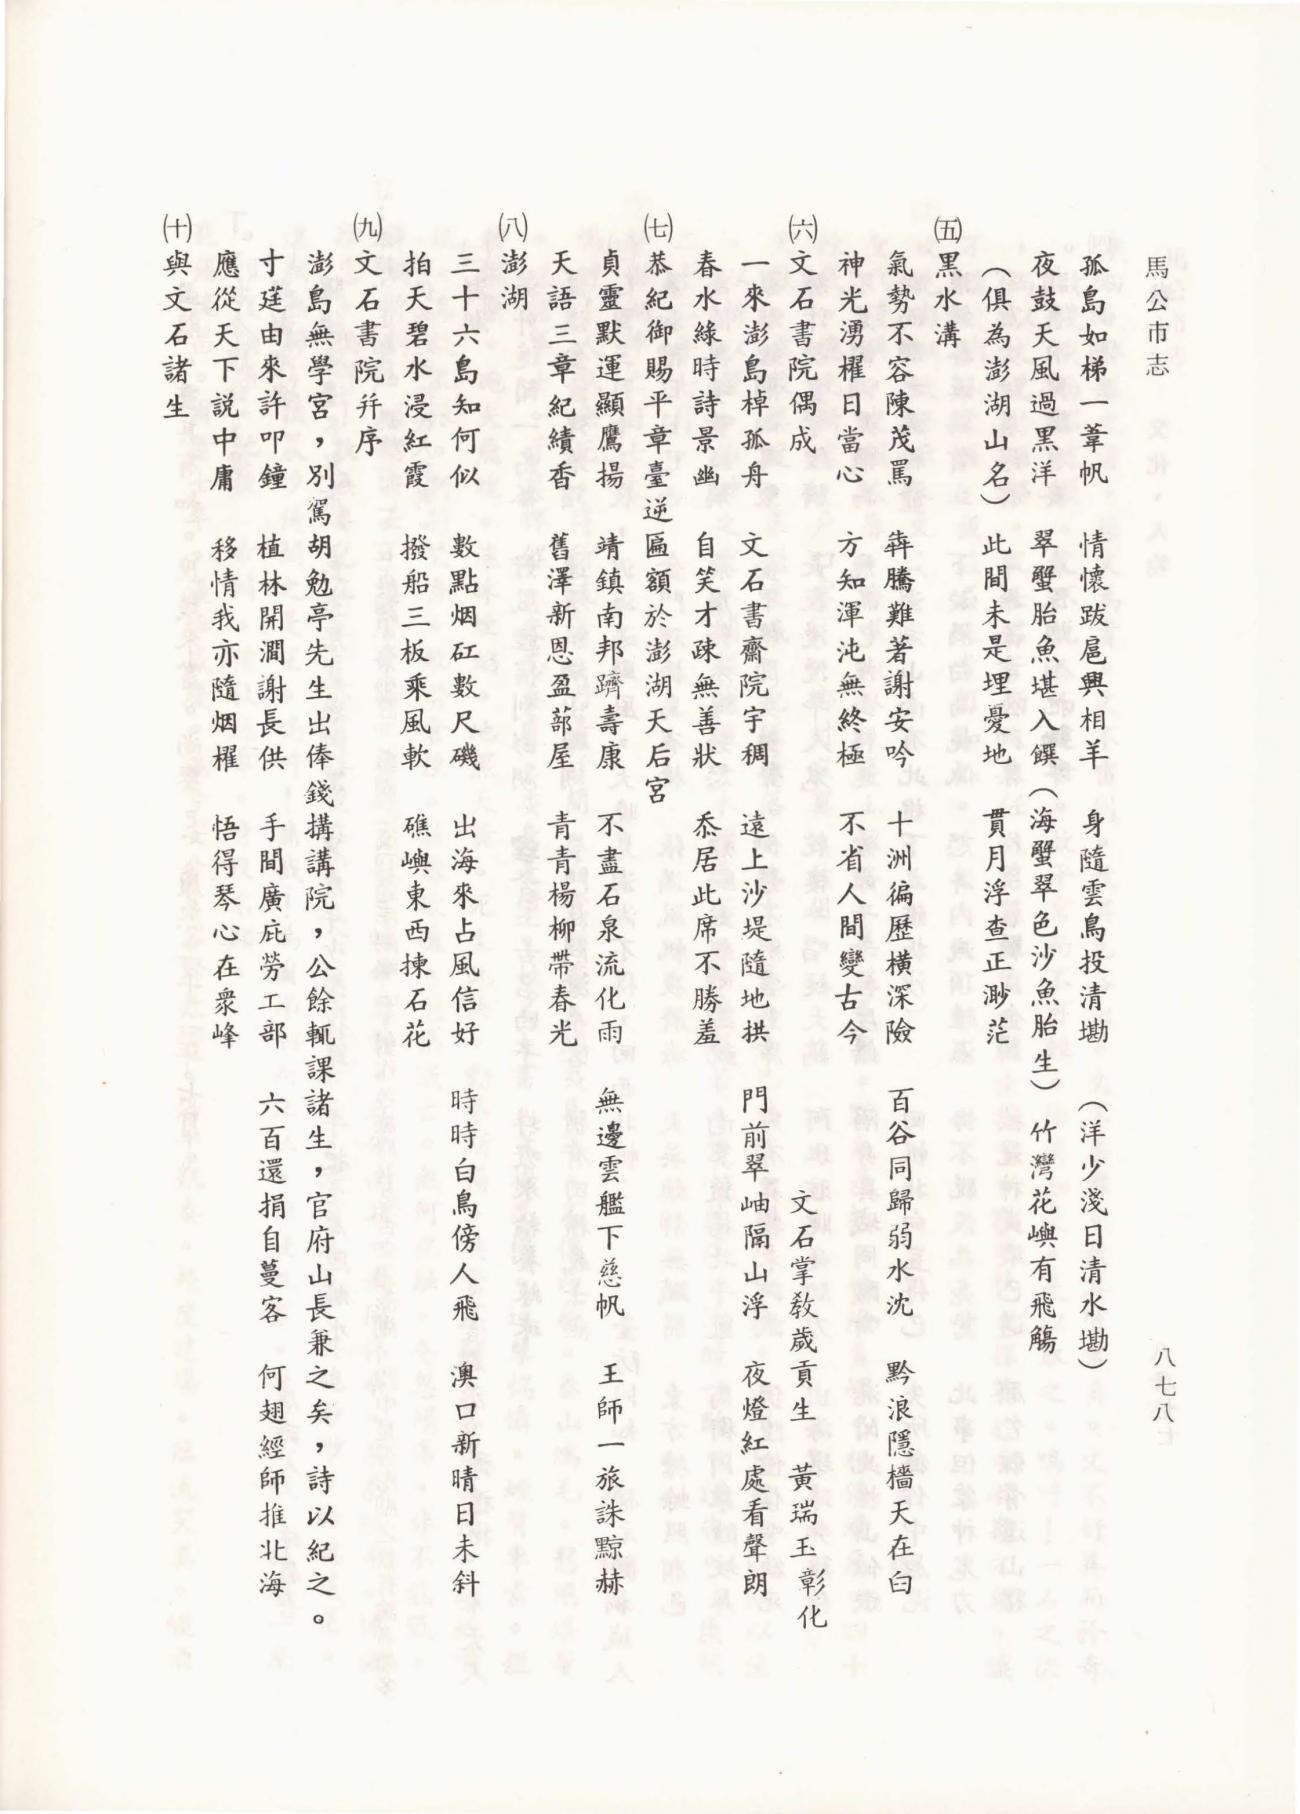 馬公市志
八七八
孤島如梯一葦帆　情懷跋扈興相羊　身隨雲鳥投清墈　（洋少淺日清水墈）
夜鼓天風過黑洋　翠蟹胎魚堪入饌（海蟹翠色沙魚胎生）竹灣花嶼有飛觴
（俱為澎湖山名）此間未是埋憂地　貫月浮查正渺茫
㈤黑水溝
氣勢不容陳茂罵　犇騰難著謝安吟　十洲徧歷橫深險　百谷同歸弱水沈　黔浪隱檣天在臼
神光湧櫂日當心　方知渾沌無終極　不省人間變古今
㈥文石書院偶成　文石掌教歲貢生　黃瑞玉彰化
一來澎島棹孤舟　文石書齋院宇稠　遠上沙堤隨地拱　門前翠岫隔山浮　夜燈紅處看聲朗
春水綠時詩景幽　自笑才疎無善狀　忝居此席不勝羞
㈦恭紀御賜平章臺逆匾額於澎湖天后宮
貞靈默運顯鷹揚　靖鎮南邦躋壽康　不盡石泉流化雨　無邊雲艦下慈帆　王師一旅誅黥赫
天語三章紀績香　舊澤新恩盈蔀屋　青青楊柳帶春光
㈧澎湖
三十六島知何似　數點烟矼數尺磯　出海來占風信好　時時白鳥傍人飛　澳口新晴日未斜
拍天碧水浸紅霞　撥船三板乘風軟　礁嶼東西揀石花
㈨文石書院幷序
澎島無學宮，別駕胡勉亭先生出俸錢搆講院，公餘輒課諸生，官府山長兼之矣，詩以紀之。
寸莛由來許叩鐘　植林開澗謝長供　手闢廣庇勞工部　六百還捐自蔓客　何翅經師推北海
應從天下説中庸　移情我亦隨烟櫂　悟得琴心在衆峰
㈩與文石諸生